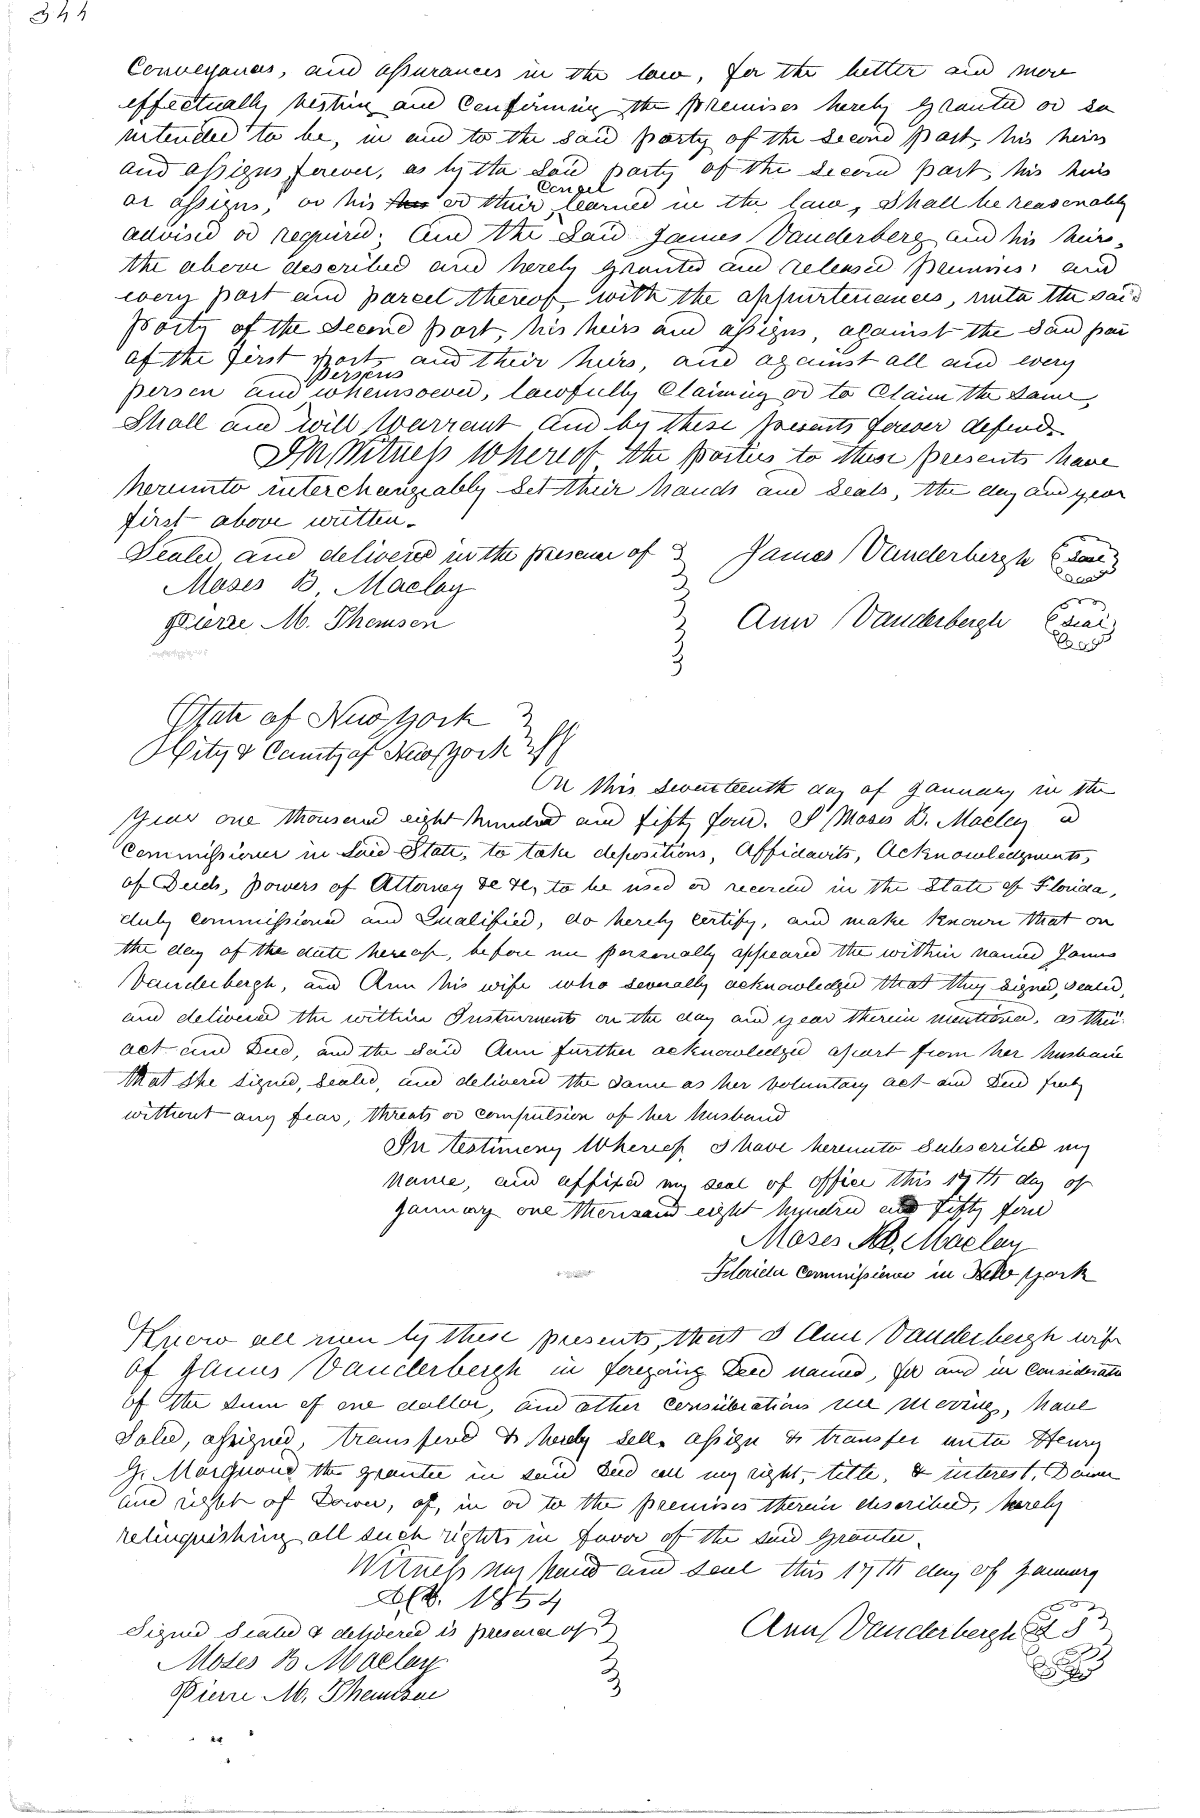 344
Conveyances, and assurances in the law, for the better and more
effectually vesting and confirming the premises hereby granted or so
intended to be, in and to the said party of the second part, his heirs
and assigns forever, as by the said party of the second part, his heirs
or assigns, or his or their Consel learned in the law, shall be reasonably
advised or required; And the said James Vanderberg and his heirs,
the above described and hereby granted and released premises, and
every part and parcel thereof, with the appurtenances, unto the said
Party of the Second part, his heirs and assigns, against the said par
of the first part, and their heirs, and against all and every
person and persons whomsoever, lawfully claiming or to claim the same,
Shall and will Warrant and by these presents forever defend.
In Witness Whereof the parties to these presents have
hereunto interchangeably set their hands and seals, the day and year
first above written.
Sealed and delivered in the presence of James Vanderbergh seal
Moses B. Maclay
Pierre M. Thomson Ann Vanderbergh seal
State of New York
City & County of New York ss
On this seventeenth day of January in the
year one thousand eight hundred and fifty four. I Moses B. Maclay a
Commissioner in said State, to take depositions, Affidavits, Acknowledgments,
of Deeds, powers of Attorney &c &c, to be used or recorded in the State of Florida,
duly commissioned and Qualified, do hereby certify, and make known that on
the day of the date hereof, before me personally appeared the within named James
Vanderbergh, and Ann his wife who severally acknowledged that they signed, sealed,
and delivered the within Instrument on the day and year therein mentioned, as their
act and Deed, and the said Ann further acknowledged apart from her husband
that she signed, sealed, and delivered the same as her voluntary act and Deed freely
without any fear, threats or compulsion of her husband
In testimony Whereof, I have hereunto subscribed my
name, and affixed my seal of office this 17th day of
January one thousand eight hundred and fifty four
Moses B. Maclay
Florida Commissioner in New York
Know all men by these presents, that I Ann Vanderbergh wife
of James Vanderbergh in foregoing Deed named, for and in consideration
of the sum of one dollar, and other considerations me moving, have
Sold, assigned, transferred & hereby sell, assign & transfer unto Henry
G. Marquand the grantee in said Deed all my right, title, & interest, Dower
and right of Dower, of, in or to the premises therein described, hereby
relinquishing all such rights in favor of the said grantee.
Witness my hand and seal this 17th day of January
1854
Signed Sealed & delivered is presence of Ann Vanderbergh L S
Moses B Maclay
Pierre M. Thomson